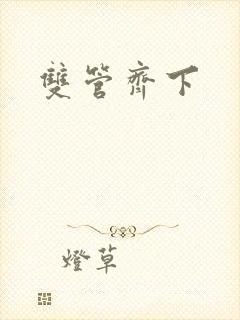 雙管齊下
燈草